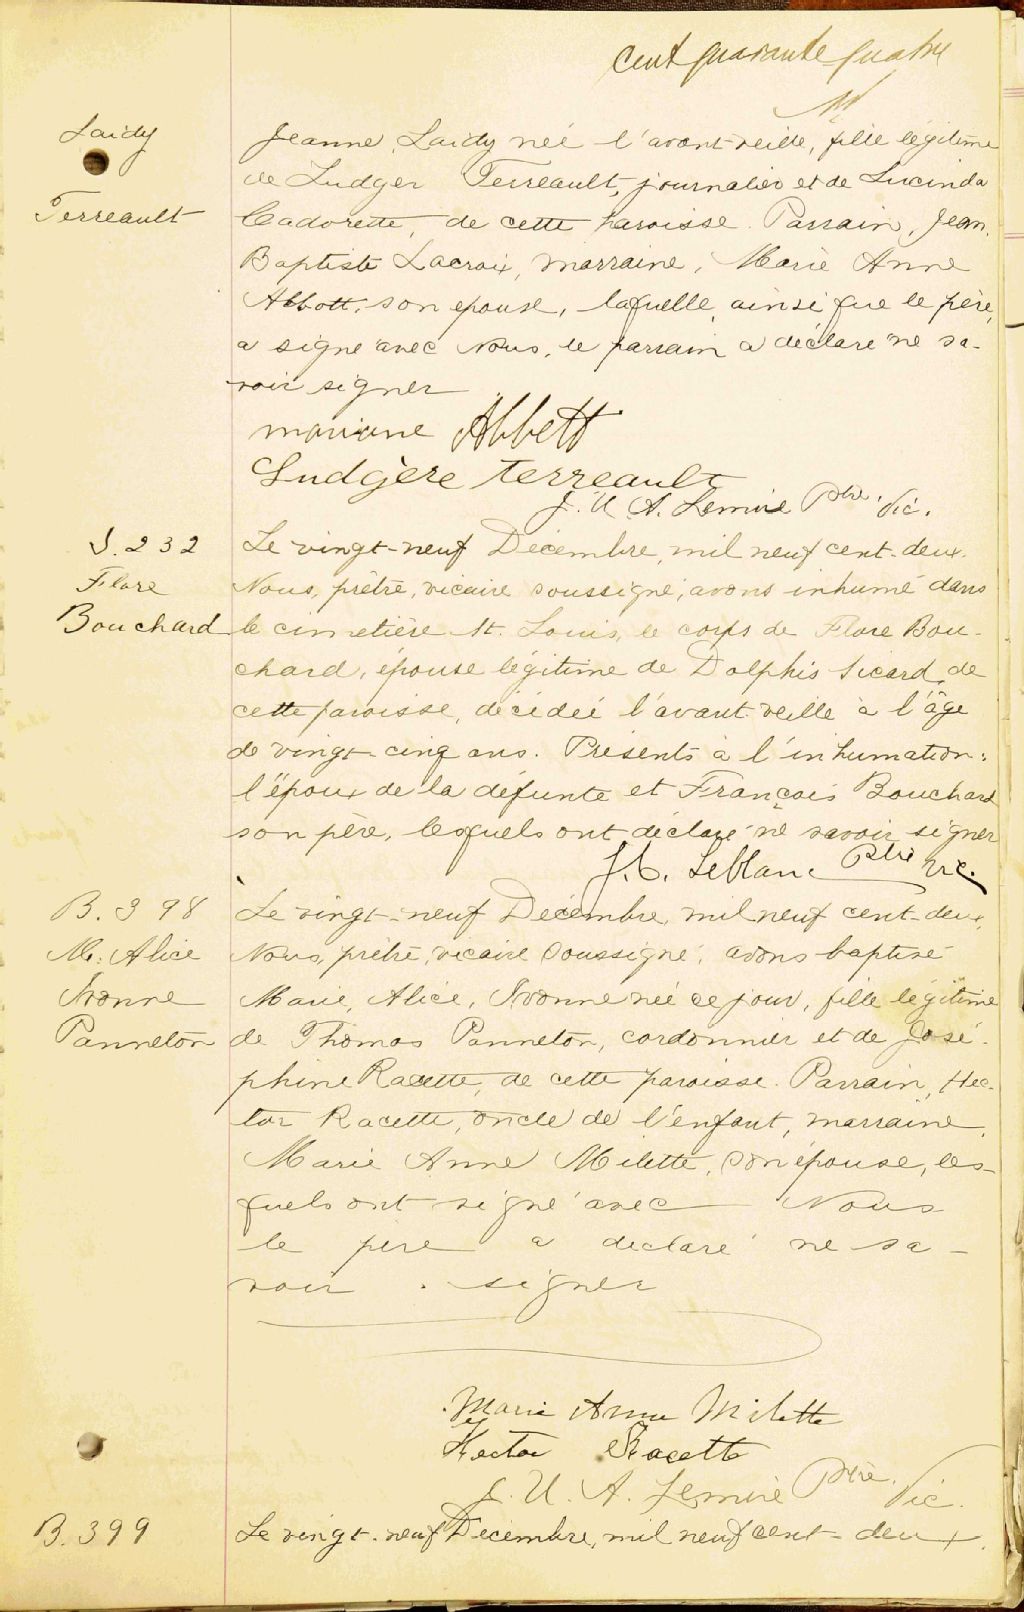 cent quarante quatre
Laidy
Terreault
Jeanne, Laidy née l'avant-veille, fille légitime
de Ludger Terreault, journalier et de Lucinda
Cadorette, de cette paroisse. Parrain, Jean.
Baptiste Lacroix, marraine, Marie Anne
Abbott, son epouse, laquelle, ainsi que le père,
a signé avec Nous, le parrain a déclaré ne sa-
voir signer
mariane Abbott
Ludgère terreault
J. U. A. Lemire Ptre. Vic.
S. 232
Flore
Bouchard
Le vingt-neuf Décembre, mil neuf cent-deux.
Nous, prêtre, vicaire soussigné, avons inhumé dans
le cimetière St. Louis, le corps de Flore Bou-
chard, épouse légitime de Dolphis Sicard, de
cette paroisse, décédée l'avant-veille à l'âge
de vingt-cinq ans. Présents à l'inhumation:
l'époux de la défunte et François Bouchard
son père, lesquels ont déclaré ne savoir signer
J. C. Leblanc Ptre vic.
B. 398
M. Alice
Ivonne
Panneton
Le vingt-neuf Décembre, mil neuf cent-deux,
Nous, prêtre, vicaire soussigné, avons baptisé
Marie, Alice, Ivonne née ce jour, fille légitime
de Thomas Panneton, cordonnier et de José-
phine Racette, de cette paroisse. Parrain, Hec-
tor Racette, oncle de l'enfant, marraine,
Marie Anne Milette, son épouse, les-
quels ont signé avec Nous
le père a déclaré ne sa-
voir signer
Marie Anna Milette
Hector Racette
J. U. A. Lemire Ptre. Vic.
B. 399
Le vingt-neuf Décembre, mil neuf cent-deux.